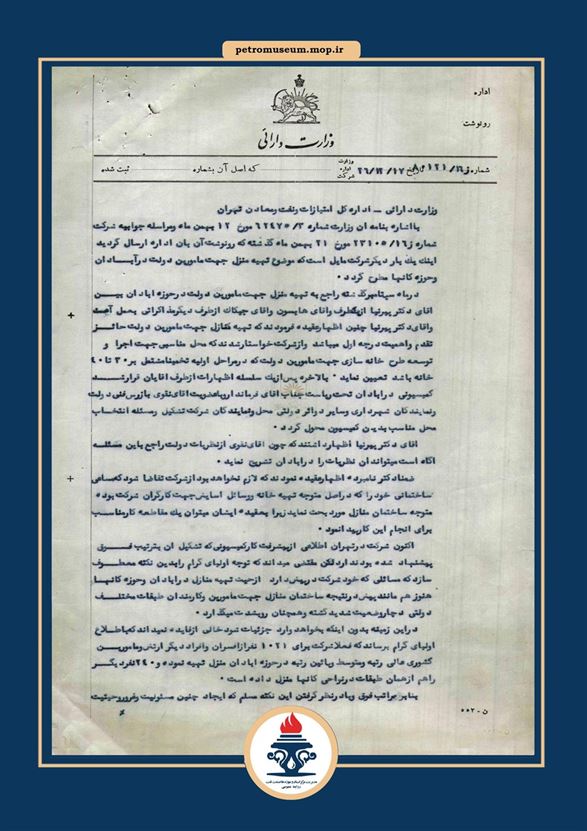 petromuseum.mop.ir
اداره
رونوشت
وزارت دارائی
شماره تاریخ ۲۶/۱۲/۱۷ وزارت اداره شرکت که اصل آن بشماره ثبت شده
وزارت دارائی - اداره کل امتیازات نفت و معادن تهران
با اشاره بنامه آن وزارت شماره ۶۲۴۷۵/۳ مورخ ۱۲ بهمن ماه و مراسله جوابیه شرکت
شماره ز۲۳۱۰۵/۱۶ مورخ ۲۱ بهمن ماه گذشته که رونوشت آن بآن اداره ارسال گردید
اینک یک بار دیگر شرکت مایل است که موضوع تهیه منزل جهت مامورین دولت در آبادان
و حوزه کانها مطرح گردد.
در ماه سپتامبر گذشته راجع به تهیه منزل جهت مامورین دولت در حوزه آبادان بین
آقای دکتر پیرنیا از یکطرف و آقای هابسون و آقای جیکاک از طرف دیگر مذاکراتی بعمل آمد
و آقای دکتر پیرنیا چنین اظهار عقیده فرمودند که تهیه منازل جهت مامورین دولت حائز
تقدم و اهمیت درجه اول میباشد و از شرکت خواستار شدند که محل مناسبی جهت اجرا و
توسعه طرح خانه سازی جهت مامورین دولت که در مراحل اولیه تخمینا مشتمل بر ۳۰ تا ۴۰
خانه باشد تعیین نماید. بالاخره پس از یک سلسله اظهارات از طرف آقایان قرار شد
کمیسیونی در آبادان تحت ریاست جناب آقای فرماندار و با عضویت آقای نقوی بازرس فنی دولت
و نمایندگان شهرداری و سایر دوائر دولتی محل و نمایندگان شرکت تشکیل و مسئله انتخاب
محل مناسب بدین کمیسیون محول گردد.
آقای دکتر پیرنیا اظهار داشتند که چون آقای نقوی از نظریات دولت راجع باین مسئله
آگاه است میتواند آن نظریات را در آبادان تشریح نماید.
ضمنا دکتر نامبرده اظهار عقیده نمودند که لازم نخواهد بود از شرکت تقاضا شود که مساعی
ساختمانی خود را که در اصل متوجه تهیه خانه و وسائل آسایش جهت کارگران شرکت بوده
متوجه ساختمان منازل مورد بحث نماید زیرا بعقیده ایشان میتوان یک مقاطعه کار مناسب
برای انجام این کار پیدا نمود.
اکنون شرکت در تهران اطلاعی از پیشرفت کار کمیسیونی که تشکیل آن بترتیب فوق
پیشنهاد شده بود ندارد لکن مقتضی میداند که توجه اولیای گرام را باین نکته معطوف
سازد که مسائلی که خود شرکت در پیش دارد از حیث تهیه منازل در آبادان و حوزه کانها
هنوز هم مانند پیش و در نتیجه ساختمان منازل جهت مامورین و کارمندان طبقات مختلف
دولتی دچار وضعیت شدید گشته و همچنان روبشدت میگذارد.
در این زمینه بدون اینکه بخواهد وارد جزئیات شود خالی از فایده نمیداند که باطلاع
اولیای گرام برساند که فعلا شرکت برای ۱۰۲۱ نفر از افسران و افراد دیگر ارتش و مامورین
کشوری عالی رتبه و متوسط و پائین رتبه در حوزه آبادان منزل تهیه نموده و ۲۴۰ نفر دیگر
را هم از همان طبقات در نواحی کانها منزل داده است.
بنابر مراتب فوق و با در نظر گرفتن این نکته مسلم که ایجاد چنین مسئولیت و
ن - ۵۵۲
روابط عمومی